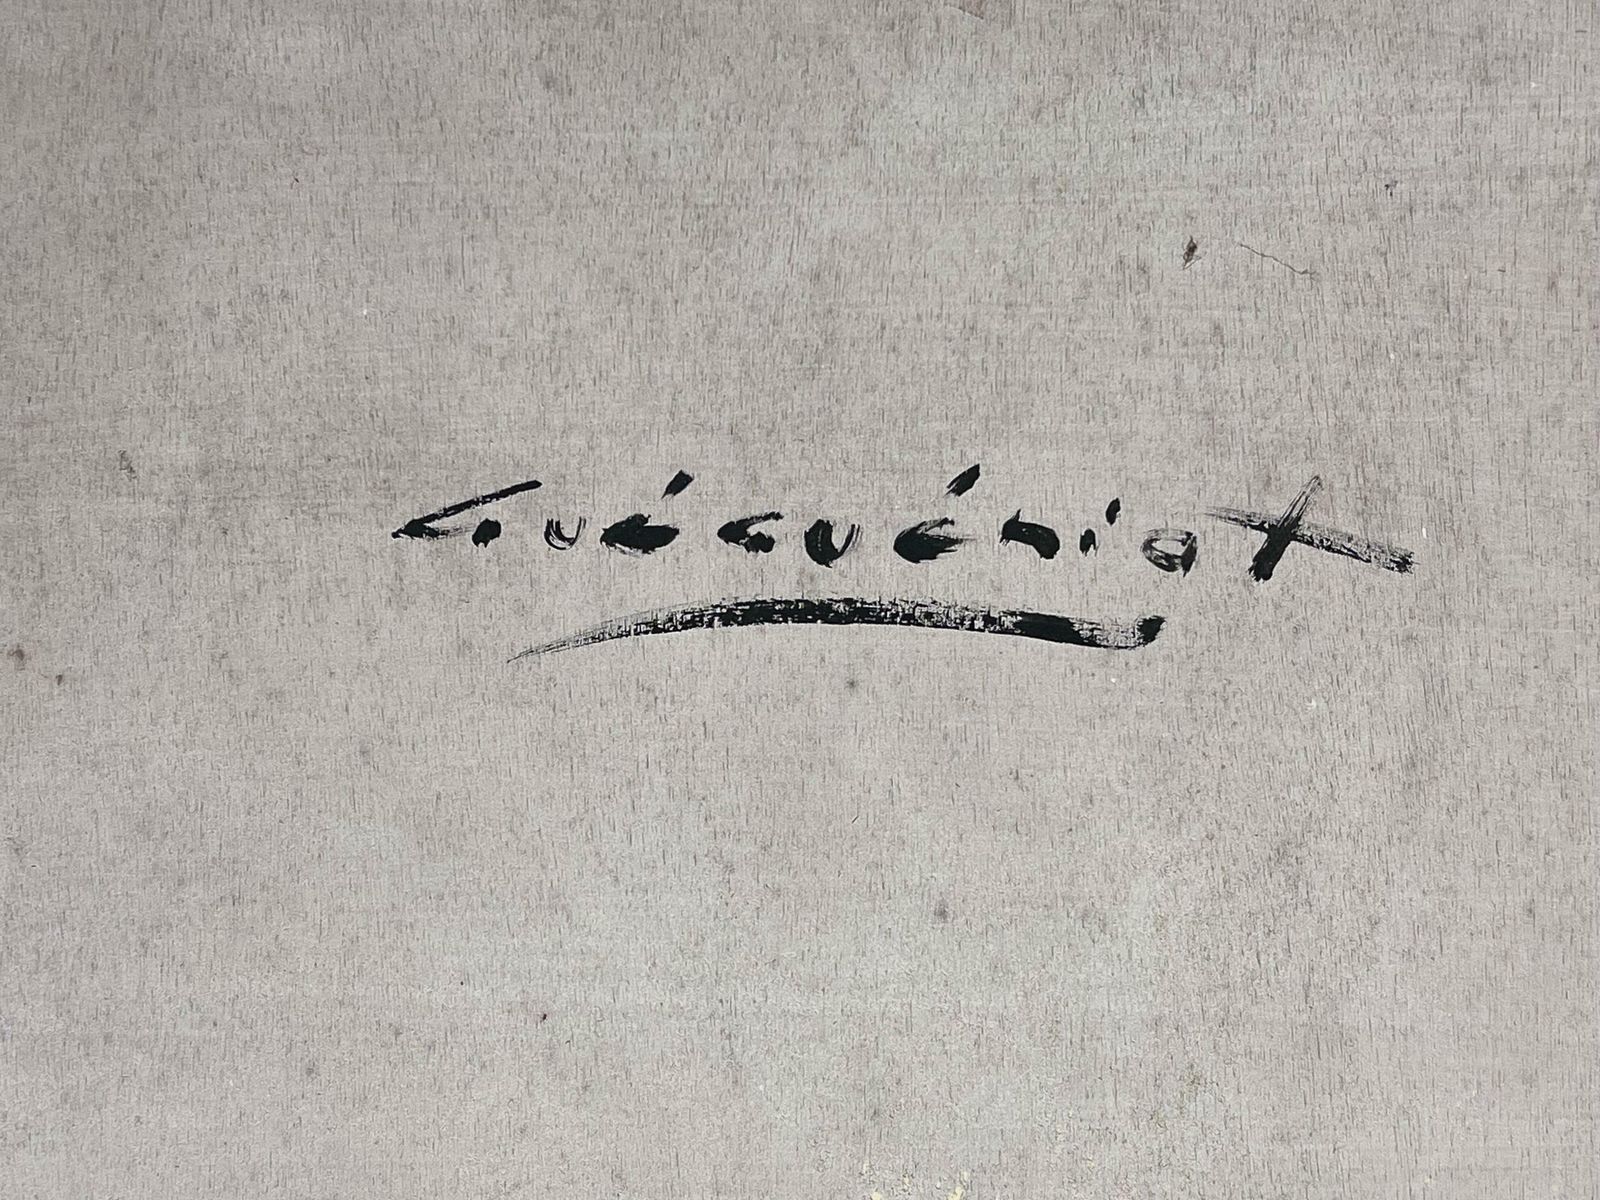 Guéguéniat